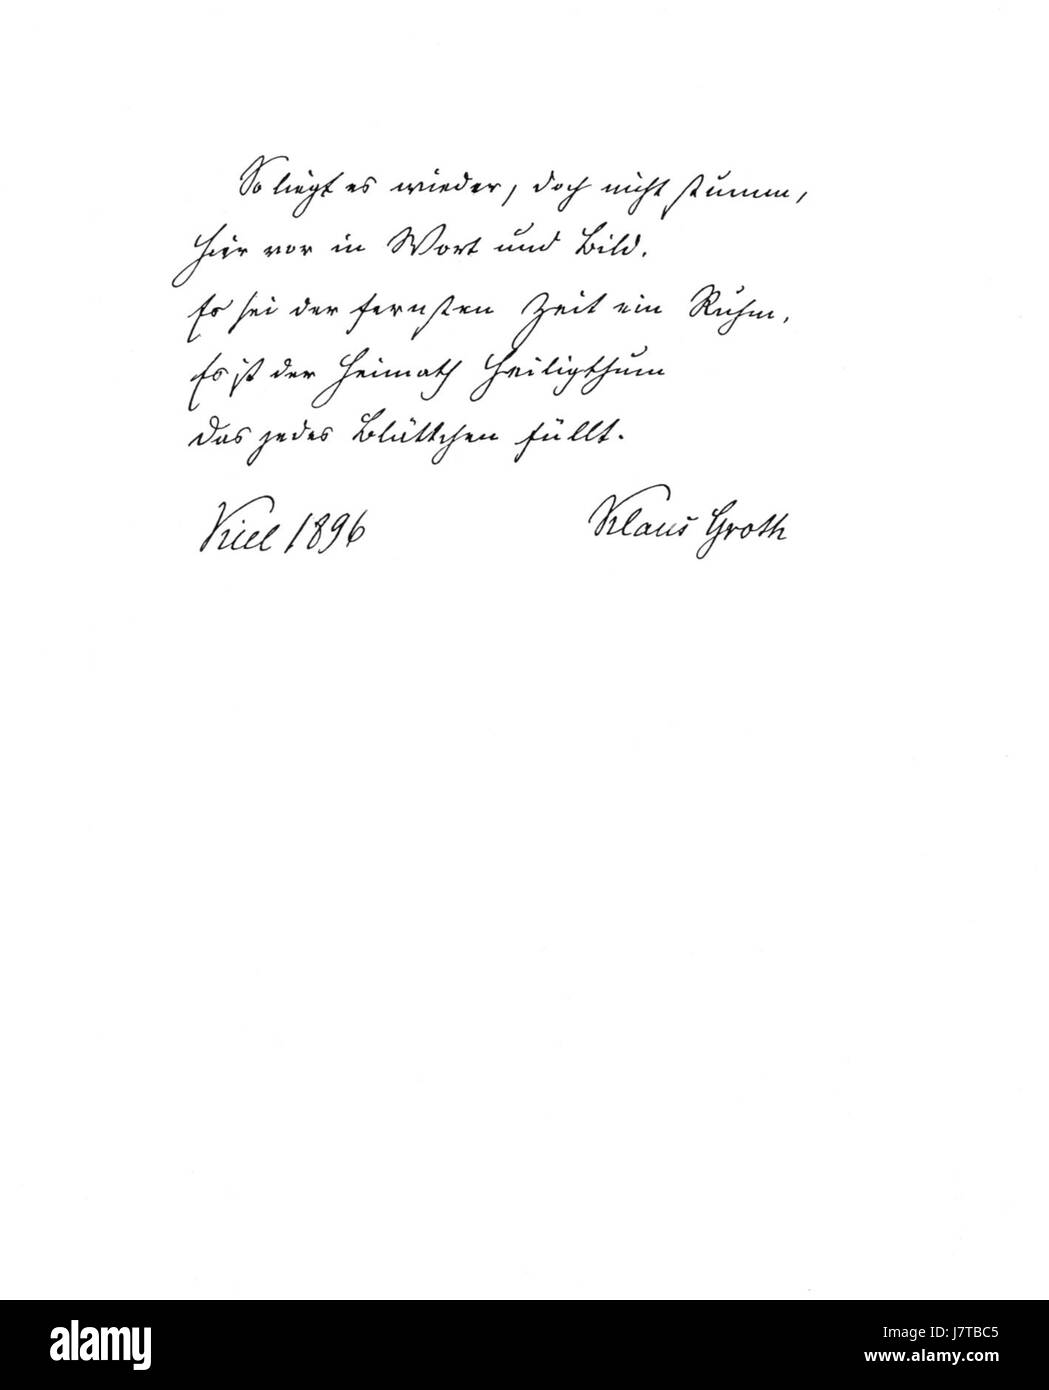 So liegt es wieder, doch nicht stumm,
Hier vor in Wort und Bild.
Es sei der fernsten Zeit ein Ruhm,
Es ist der Heimath Heiligthum
Das jedes Blättchen füllt.
Kiel 1896 Klaus Groth
alamy
Image ID: J7TBC5
www.alamy.com